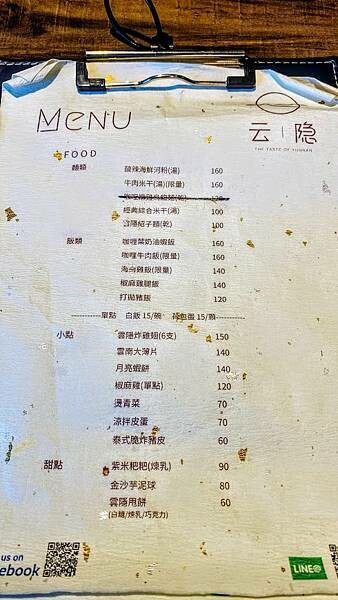 MENU
云 | 隐
THE TASTE OF YUNNAN
FOOD
麵類 酸辣海鮮河粉(湯) 160
牛肉米干(湯)(限量) 160
經典綜合米干(湯) 100
雲隱紹子麵(乾) 100
飯類 咖哩葉奶油蝦飯 160
咖哩牛肉飯(限量) 160
海南雞飯(限量) 140
椒麻雞腿飯 140
打拋豬飯 120
單點 白飯 15/碗 荷包蛋 15/顆
小點 雲隱炸雞翅(6支) 150
雲南大薄片 140
月亮蝦餅 140
椒麻雞(單點) 120
燙青菜 70
涼拌皮蛋 70
泰式脆炸豬皮 60
甜點 紫米粑粑(煉乳) 90
金沙芋泥球 80
雲隱甩餅 60
(白糖/煉乳/巧克力)
us on
ebook
LINE@